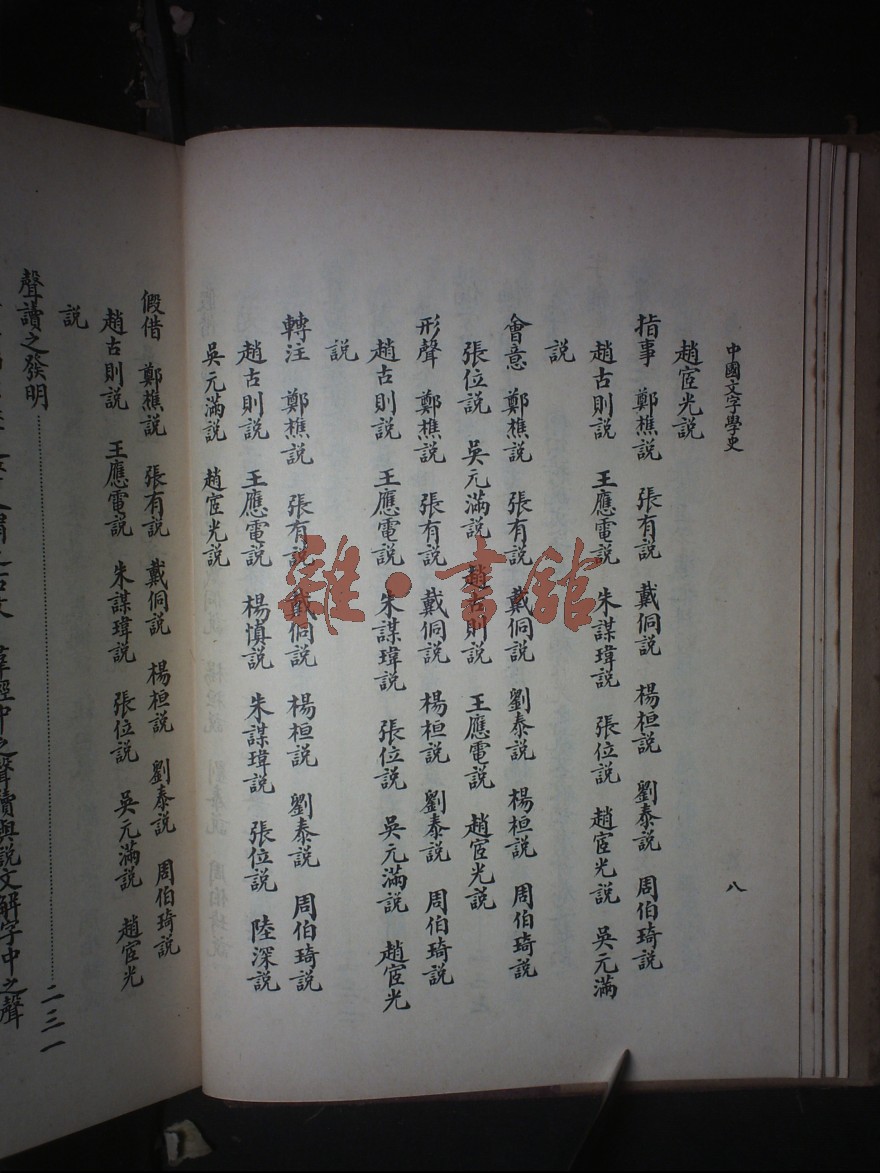 中國文字學史
八
趙宧光說
指事 鄭樵說 張有說 戴侗說 楊桓說 劉泰說 周伯琦說
趙古則說 王應電說 朱謀㙔說 張位說 趙宧光說 吳元滿
說
會意 鄭樵說 張有說 戴侗說 劉泰說 楊桓說 周伯琦說
張位說 吳元滿說 趙古則說 王應電說 趙宧光說
形聲 鄭樵說 張有說 戴侗說 楊桓說 劉泰說 周伯琦說
趙古則說 王應電說 朱謀㙔說 張位說 吳元滿說 趙宧光
說
轉注 鄭樵說 張有說 戴侗說 楊桓說 劉泰說 周伯琦說
趙古則說 王應電說 楊慎說 朱謀㙔說 張位說 陸深說
吳元滿說 趙宧光說
假借 鄭樵說 張有說 戴侗說 楊桓說 劉泰說 周伯琦說
趙古則說 王應電說 朱謀㙔說 張位說 吳元滿說 趙宧光
說
聲讀之發明……二三一
羣經中之聲讀與說文解字中之聲
雜·書館